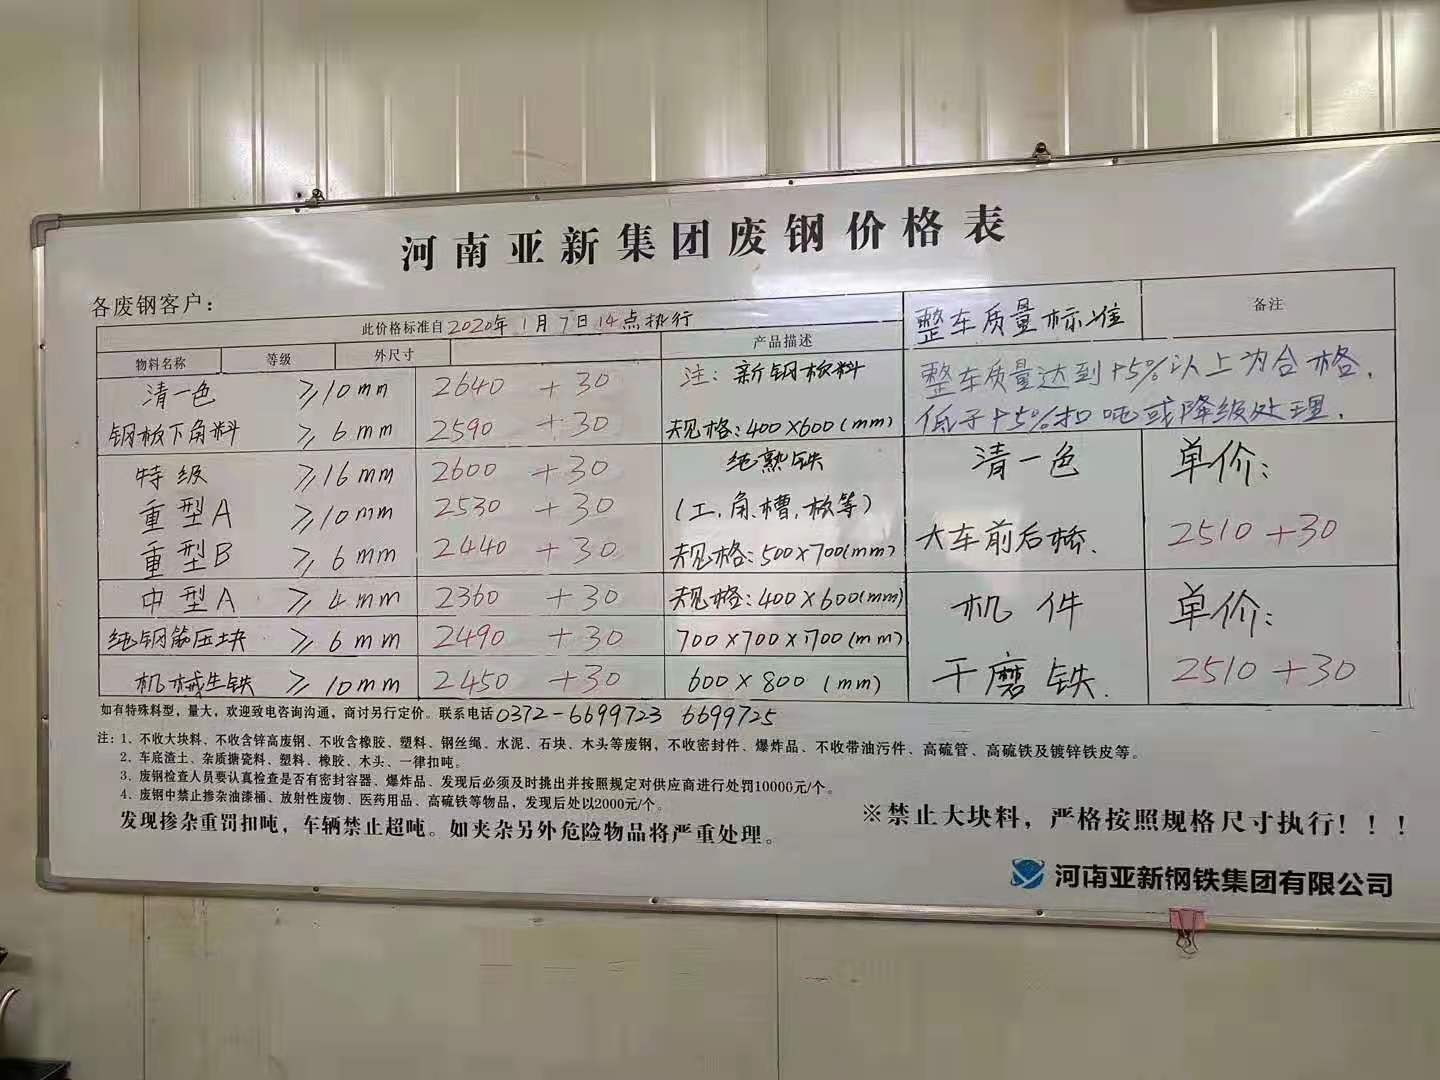 河南亚新集团废钢价格表
各废钢客户：
此价格标准自2020年1月7日14点执行
整车质量标准
备注
物料名称 等级 外尺寸 产品描述
清一色 ≥10mm 2640 +30 注：新钢板料
钢板下角料 ≥6mm 2590 +30 规格：400×600(mm)
整车质量达到+5%以上为合格，
低于+5%扣吨或降级处理．
特级 ≥16mm 2600 +30 纯熟铁
重型A ≥10mm 2530 +30 (工．角．槽．板等)
重型B ≥6mm 2440 +30 规格：500×700(mm)
中型A ≥4mm 2360 +30 规格：400×600(mm)
纯钢筋压块 ≥6mm 2490 +30 700×700×700(mm)
机械生铁 ≥10mm 2450 +30 600×800 (mm)
清一色 单价：
大车前后桥． 2510+30
机件 单价：
干磨铁． 2510+30
如有特殊料型，量大，欢迎致电咨询沟通，商讨另行定价。联系电话0372-6699723 6699725
注：1、不收大块料、不收含锌高废钢、不收含橡胶、塑料、钢丝绳、水泥、石块、木头等废钢，不收密封件、爆炸品、不收带油污件、高硫管、高硫铁及镀锌铁皮等。
2、车底渣土、杂质搪瓷料、塑料、橡胶、木头、一律扣吨。
3、废钢检查人员要认真检查是否有密封容器、爆炸品、发现后必须及时挑出并按照规定对供应商进行处罚10000元/个。
4、废钢中禁止掺杂油漆桶、放射性废物、医药用品、高硫铁等物品，发现后处以2000元/个。
发现掺杂重罚扣吨，车辆禁止超吨。如夹杂另外危险物品将严重处理。
※禁止大块料，严格按照规格尺寸执行！！！
河南亚新钢铁集团有限公司